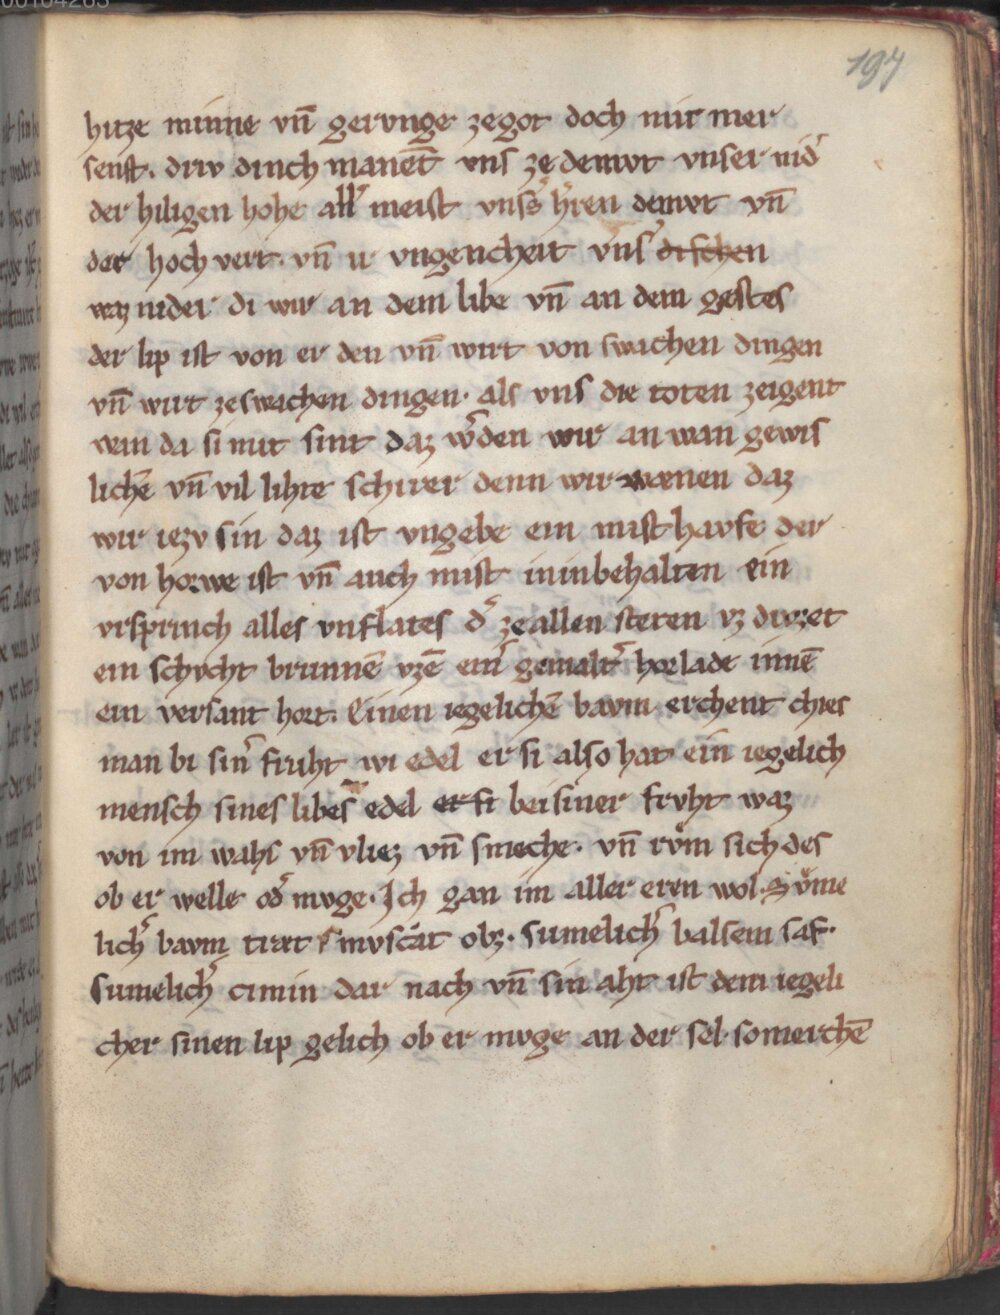 197
hitze minne vn̄ gervnge zegot doch nüt mer
senft. driv dinch manēt vns ze demvt vnser nid᷎
der hiligen hohe all᷎ meist vns᷎s h᷎ren demvt vn̄
der hochvert. vn̄ ir vngencheit vns᷎ difchen
waz nideri di wir an dem libe vn̄ an dem gestes
der lip ist von er den vn̄ wirt von swachen dingen
vn̄ wirt zeswachen dingen. als vns die toten zeigent
wan da si nut sint daz w᷎den wir an wan gewis
lichē vn̄ vil lihte schirer denn wir wænen daz
wir iezv sin daz ist vngebe ein misthavfe der
von horwe ist vn̄ auch mist ininbehalten ein
vrsprinch alles vnflates d᷎ ze allen steten vz divzet
ein schvcht brunnē vzē ein᷎ gemalt᷎ horlade innē
ein versant hort. Einen iegelichē bavm erchent chies
man bi sin᷎ fruht wi edel er si also hat ein iegelich
mensch sines libes edel er si bei siner frvht waz
von im wahs vn̄ vliez vn̄ smeche. vn̄ rvͦm sich des
ob er welle od᷎ mvge. Ich gan im aller eren wol. Svͦme
lich᷎ bavm træt mvscat obz. sumelich᷎ balsem saf.
sumelich᷎ cimin dar nach vn̄ sin aht ist dem iegeli
cher sinen lip gelich ob er mvge an der sel. so merchē